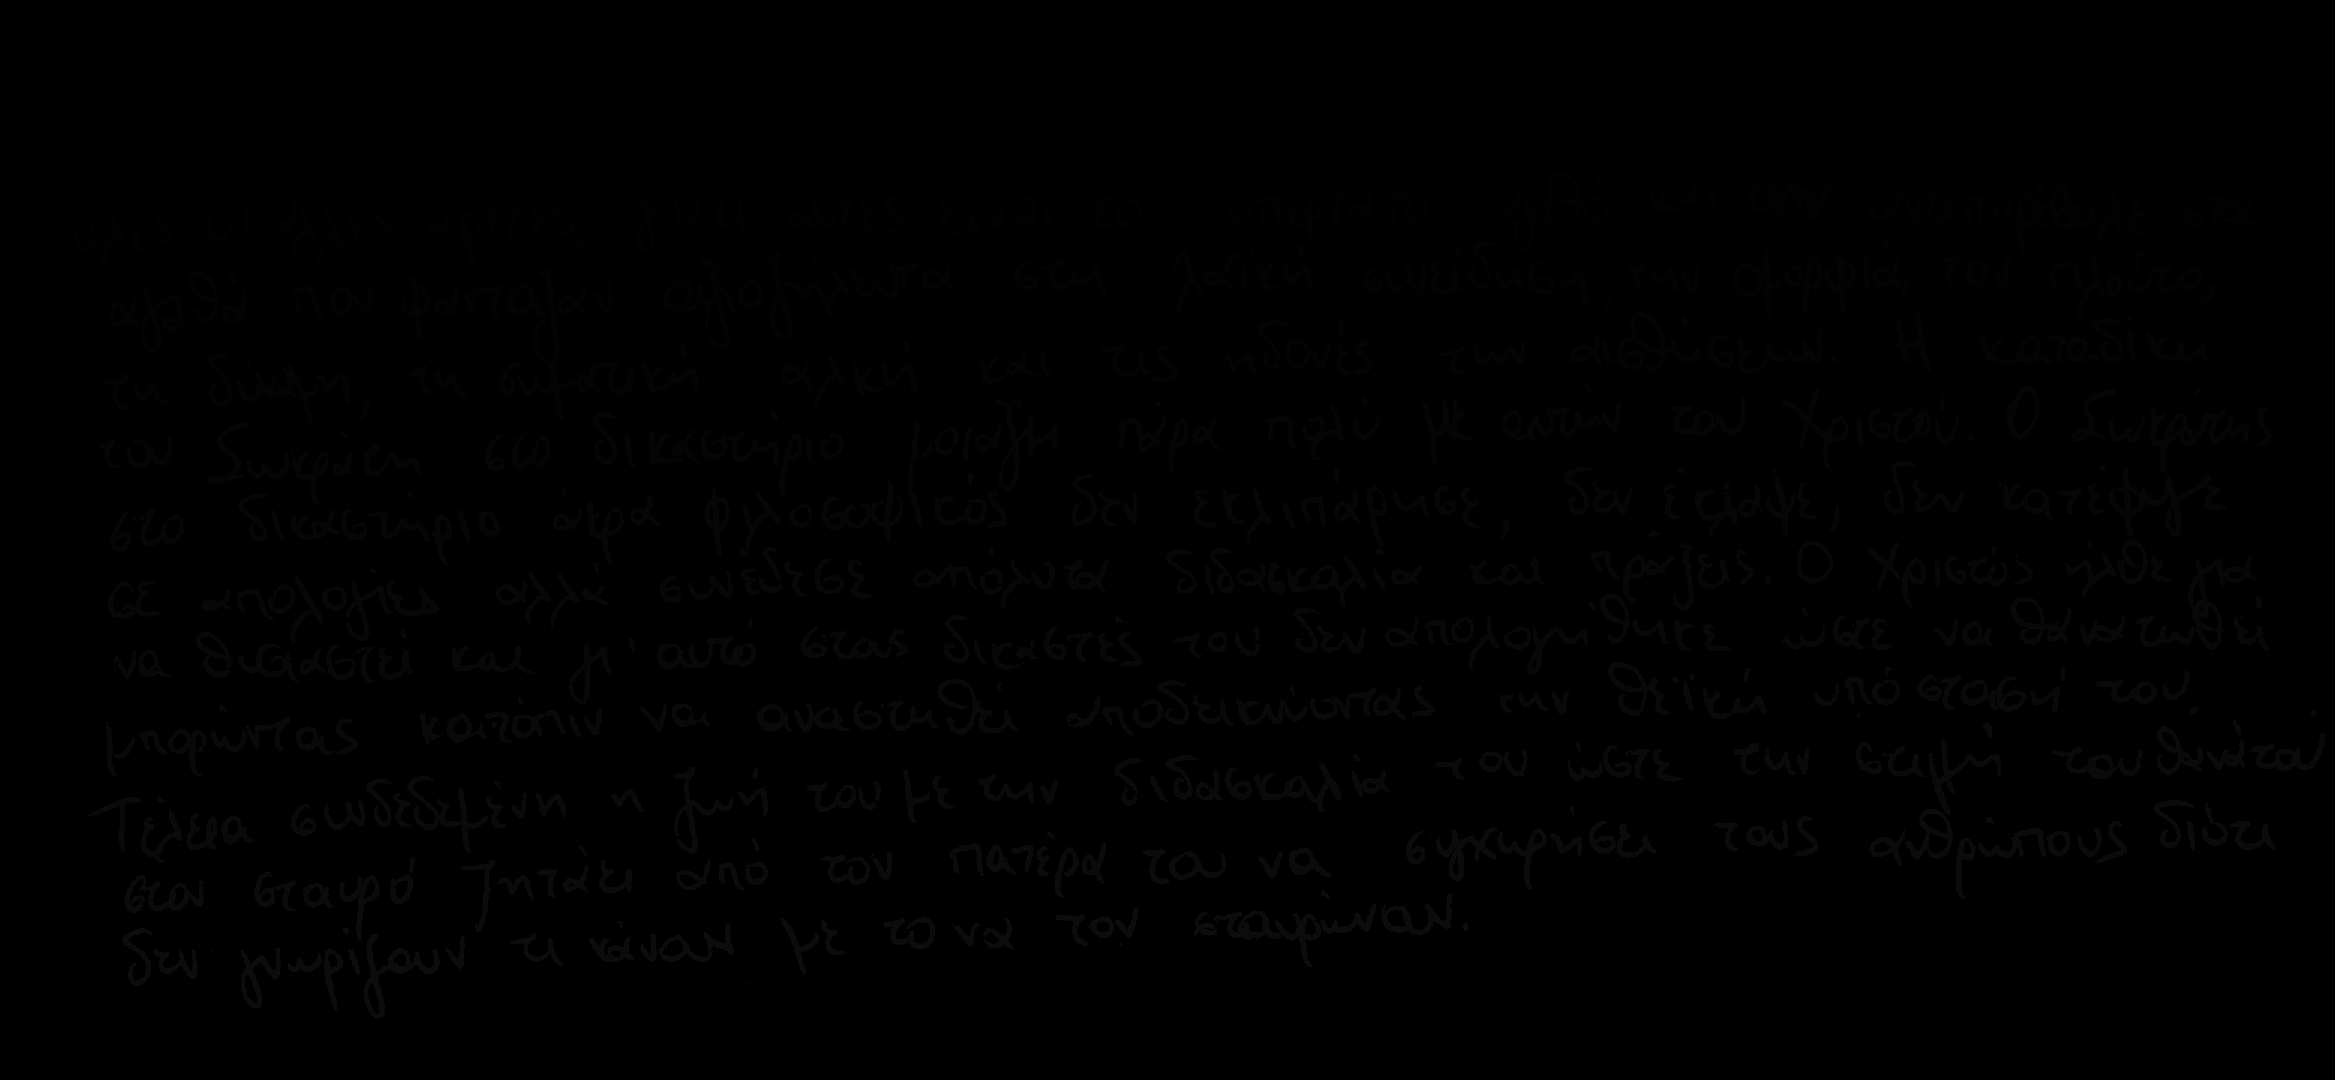 Ο Σωκράτης δίδασκε ότι η αρετή
όλες οι άλλες αρετές, γιατί αυτές είναι το υπέρτατο αγαθό και την αντιπαρέβαλε στα
αγαθά που φάνταζαν αξιοζήλευτα στη λαϊκή συνείδηση, την ομορφιά, τον πλούτο,
τη δύναμη, τη σωματική αλκή και τις ηδονές των αισθήσεων. Η καταδίκη
του Σωκράτη στο δικαστήριο μοιάζει πάρα πολύ με αυτήν του Χριστού. Ο Σωκράτης
στο δικαστήριο άκρα φιλοσοφικός δεν εκλιπάρησε, δεν έκλαψε, δεν κατέφυγε
σε απολογίες αλλά συνέδεσε απόλυτα διδασκαλία και πράξεις. Ο Χριστός ήλθε για
να θυσιαστεί και γι' αυτό στους δικαστές του δεν απολογήθηκε ώστε να θανατωθεί
μπορώντας κατόπιν να αναστηθεί αποδεικνύοντας την θεϊκή υπόστασή του.
Τέλεια συνδεδεμένη η ζωή του με την διδασκαλία του ώστε την στιγμή του θανάτου
στον σταυρό ζητάει από τον πατέρα του να συγχωρήσει τους ανθρώπους διότι
δεν γνωρίζουν τι κάνουν με το να τον σταυρώνουν.